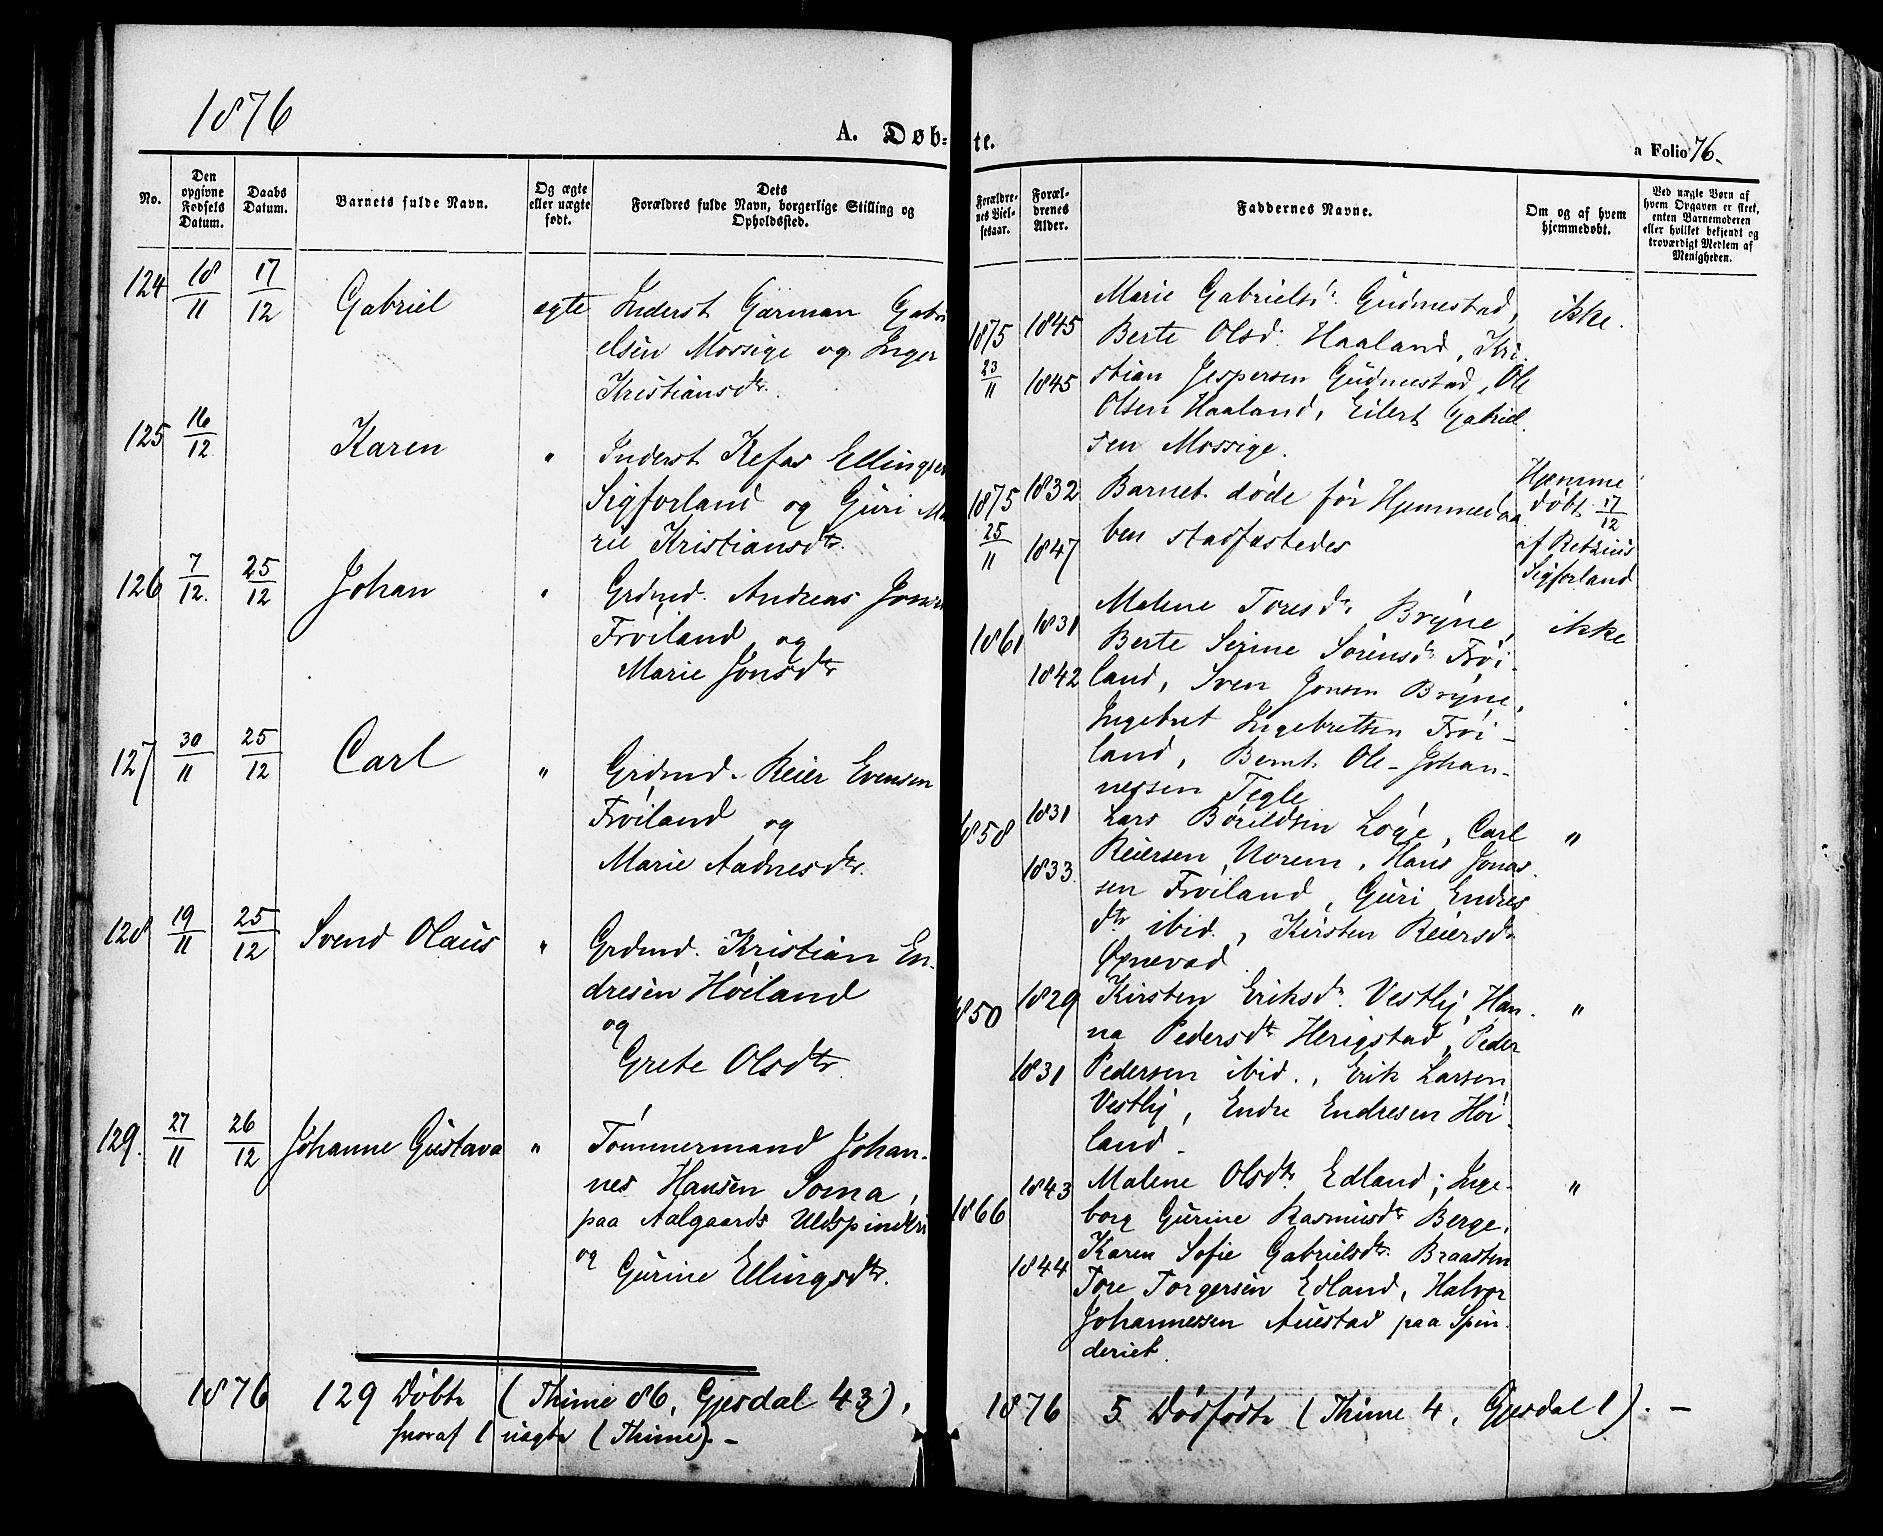 1876
A. Døb-
te.
a Folio 76.
No.
Den opgivne Fødsels Datum.
Daabs Datum.
Barnets fulde Navn.
Og ægte eller uægte født.
Dets Forældres fulde Navn, borgerlige Stilling og Opholdssted.
Forældrenes Vielsesaar.
Forældrenes Alder.
Faddernes Navne.
Om og af hvem hjemmedøbt.
Ved uægte Børn af hvem Opgaven er skeet, enten Barnemoderen eller hvilket bekjendt og troværdigt Medlem af Menigheden.
124 18/11 17/12 Gabriel ægte Inderst Garman Gabri
elsen Mossige og Inger
Kristiansdtr.
1875 23/11
1845
1845
Marie Gabrielsd. Gudmestad,
Berte Olsd. Haaland, Kri
stian Jespersen Gudmestad, Ole
Olsen Haaland, Eilert Gabriel
sen Mossige.
ikke.
125 16/12 Karen " Inderst Kefas Ellingsen
Sigforland og Guri Ma
rie Kristiansdtr.
1875 25/11
1832
1847
Barnet døde før Hjemmedaa
ben stadfæstedes
Hjemme
døbt 17/12
af Retzius
Sigforland
126 7/12. 25/12 Johan " Grdmd. Andreas Jonsen
Frøiland og
Marie Jonsdtr
1861
1831
1842
Malene Toresdr. Bryne,
Berte Serine Sørensdr Frøi-
land, Sven Jonsen Bryne,
Ingebret Ingebretsen Frøi-
land, Bernt Ole-Johan-
nessen Tegle
ikke
127 30/11 25/12 Carl " Grdmd. Reier Evensen
Frøiland og
Marie Aadnesdtr.
1858
1831
1833.
Lars Börildsen Løge, Carl
Reiersen Norem, Hans Jonas
sen Frøiland, Guri Endres
dtr ibid., Kirsten Reiersdr
Øgnevad
"
128 19/11 25/12 Svend Olaus " Grdmd. Kristian En-
dresen Høiland
og
Grete Olsdtr.
1850
1829
1831
Kirsten Eriksdr. Vestly, Han-
na Pedersdtr Herigstad, Peder
Pedersen ibid., Erik Larsen
Vestly, Endre Endresen Høi-
land.
"
129. 27/11 26/12 Johanne Gustava " Tømmermand Johan-
nes Hansen Soma,
paa Aalgaards Uldspinderi
og
Gurine Ellingsdtr.
1866
1843
1844
Malene Olsdtr. Edland, Inge-
borg Gurine Rasmusdtr Berge,
Karen Sofie Gabrielsdtr. Braasten
Tore Torgersen Edland, Halvor
Johannessen Auestad paa Spin-
deriet.
"
1876 129 Døbte (Thime 86, Gjesdal 43),
hvoraf 1 uægte (Thime). –
1876 5 Dødfødte (Thime 4, Gjesdal 1). –